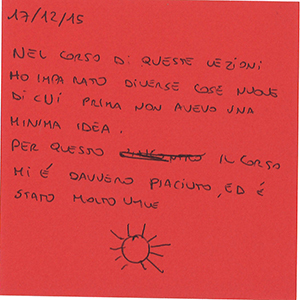 17/12/15
NEL CORSO DI QUESTE LEZIONI
HO IMPARATO DIVERSE COSE NUOVE
DI CUI PRIMA NON AVEVO UNA
MINIMA IDEA.
PER QUESTO IL CORSO
MI É DAVVERO PIACIUTO, ED É
STATO MOLTO UTILE